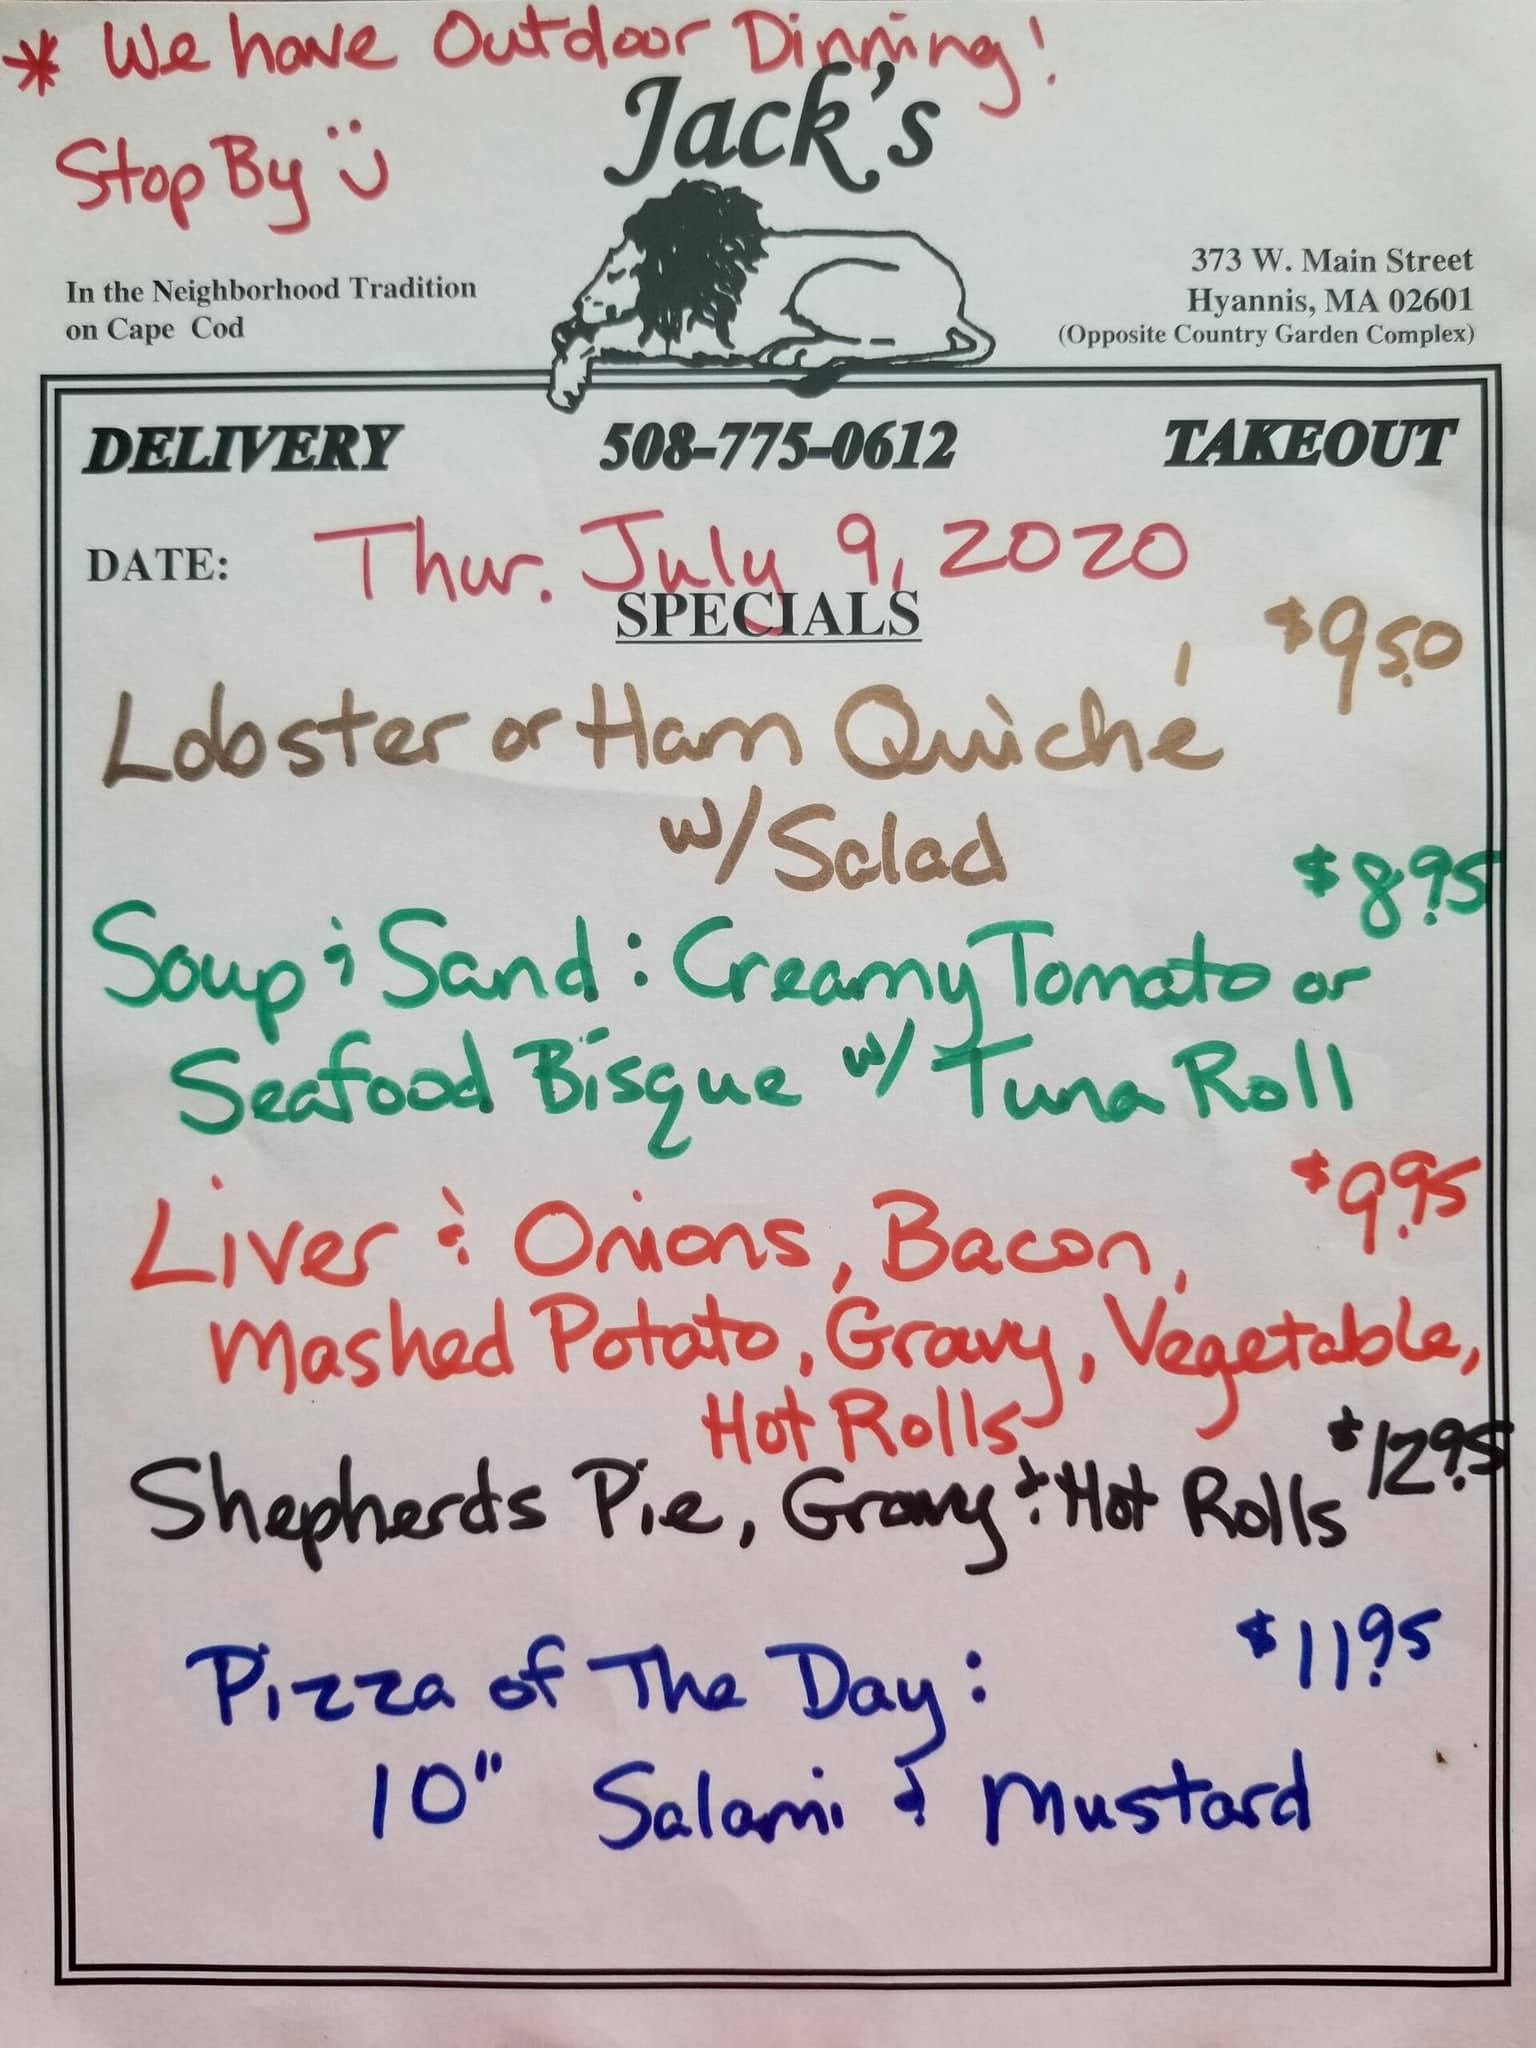 * We have Outdoor Dinning!
Stop By
Jack's
In the Neighborhood Tradition
on Cape Cod
373 W. Main Street
Hyannis, MA 02601
(Opposite Country Garden Complex)
DELIVERY 508-775-0612 TAKEOUT
DATE: Thur. July 9, 2020
SPECIALS
$9.50
Lobster or Ham Quiché
w/ Salad
$8.95
Soup & Sand: Creamy Tomato or
Seafood Bisque w/ Tuna Roll
$9.95
Liver & Onions, Bacon,
Mashed Potato, Gravy, Vegetable,
Hot Rolls
Shepherds Pie, Gravy & Hot Rolls $12.95
Pizza of The Day: $11.95
10" Salami & Mustard